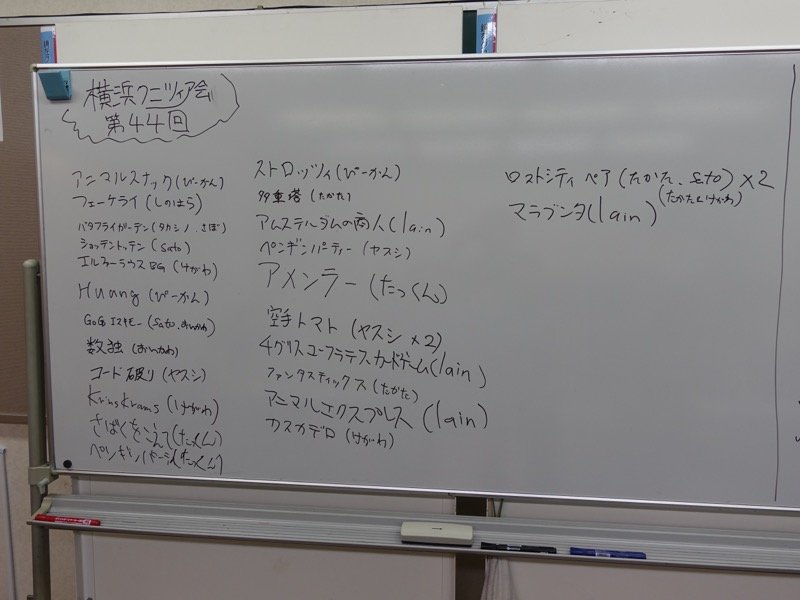 横浜クニツィア会
第44回
アニマルスナック(ぴーかん)
フェーケライ(しのはら)
バタフライガーデン(タカシノ、さぼ)
ショッテントッテン(sato)
エルファーラウス BG(けがわ)
Huang(ぴーかん)
GoGoエスキモー(sato、おいかわ)
数独(おいかわ)
コード破り(ヤスシ)
Kringkrams(けがわ)
さばくをこえて(たっくん)
ペンギンパーティ(たっくん)
ストロッツィ(ぴーかん)
99重塔(たかた)
アムステルダムの商人(lain)
ペンギンパーティー(ヤスシ)
アメンラー(たっくん)
空手トマト(ヤスシ×2)
チグリスユーフラテスカードゲーム(lain)
ファンタスティックス(たかた)
アニマルエクスプレス(lain)
カスカデロ(けがわ)
ロストシティ ペア(たかた、sato)×2
(たかたとけがわ)
マラブンタ(lain)